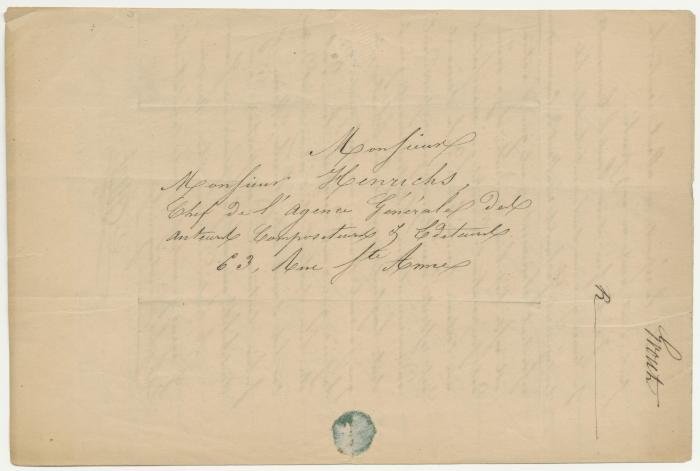 Monsieur
Monsieur Henrichs,
Chef de l'agence Générale des
auteurs Compositeurs & Editeurs
63, Rue Ste Anne
R